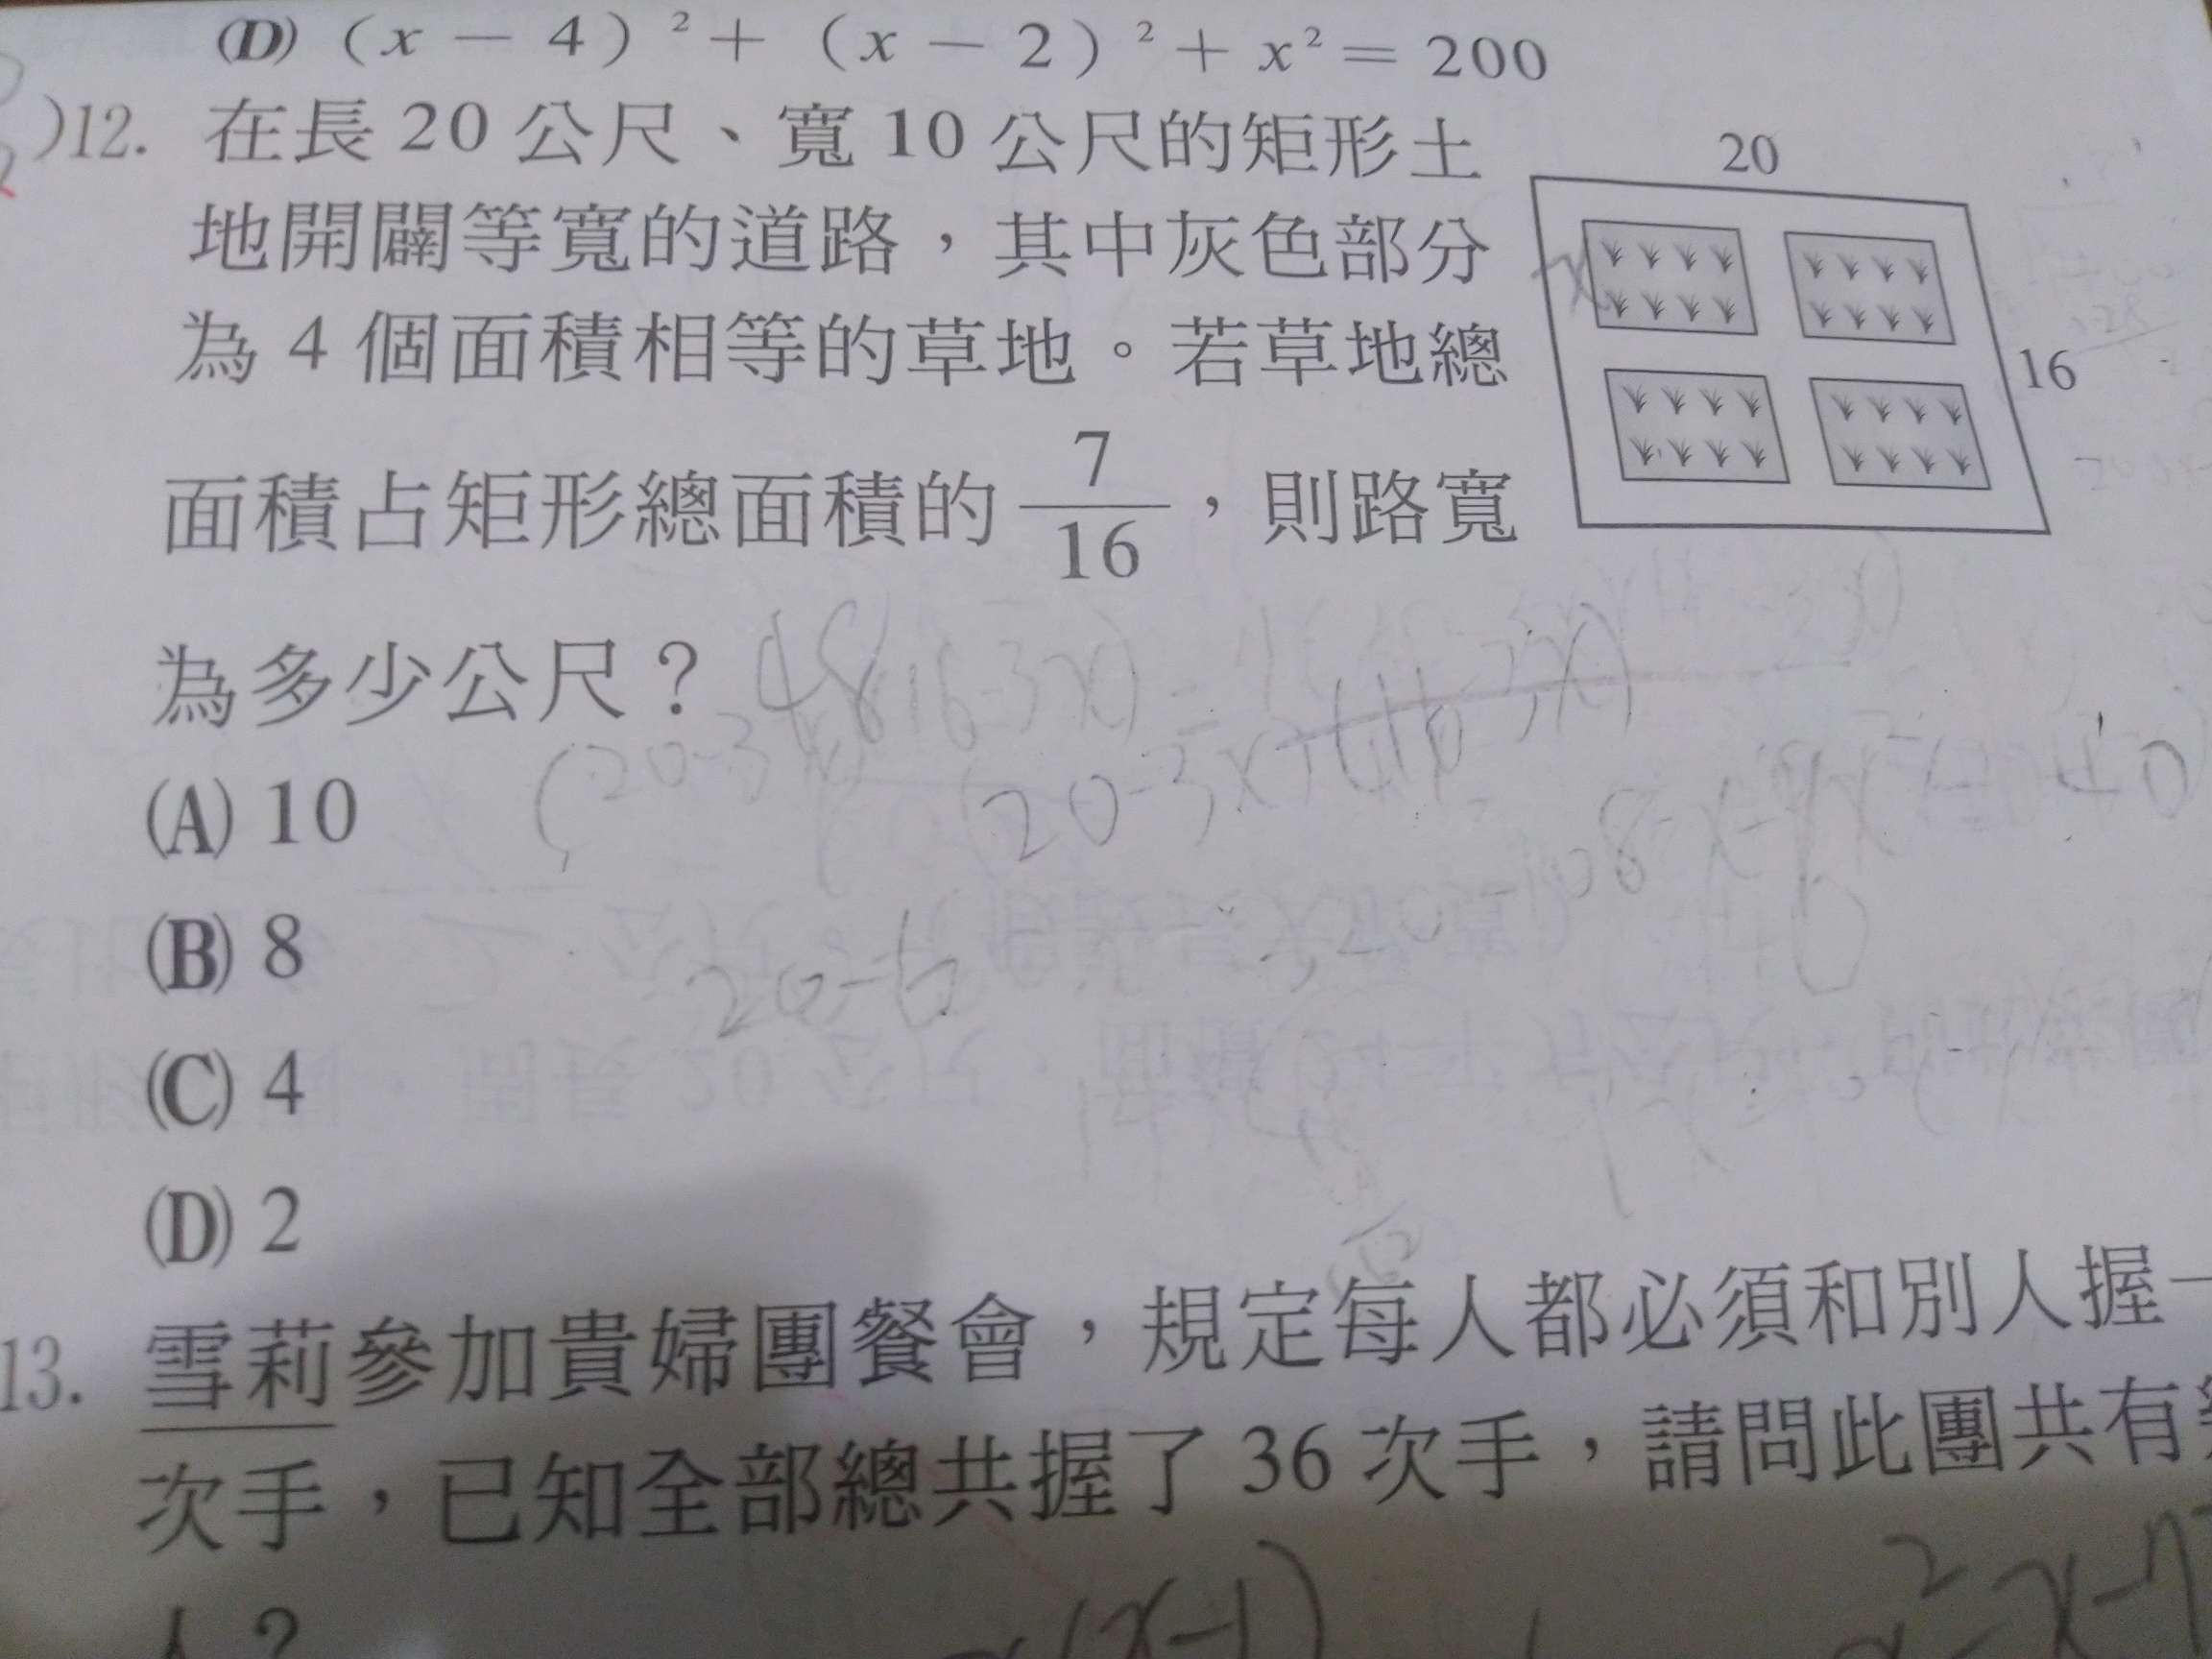 (D)（x－4）²＋（x－2）²＋x²＝200
)12. 在長 20 公尺、寬 10 公尺的矩形土
地開闢等寬的道路，其中灰色部分
為 4 個面積相等的草地。若草地總
面積占矩形總面積的 7/16，則路寬
為多少公尺？
20
x
16
(20-3x)
(16-3x)
(20-3x)
20-6
(A) 10
(B) 8
(C) 4
(D) 2
13. 雪莉參加貴婦團餐會，規定每人都必須和別人握一
次手，已知全部總共握了 36 次手，請問此團共有
人？
(x-1)